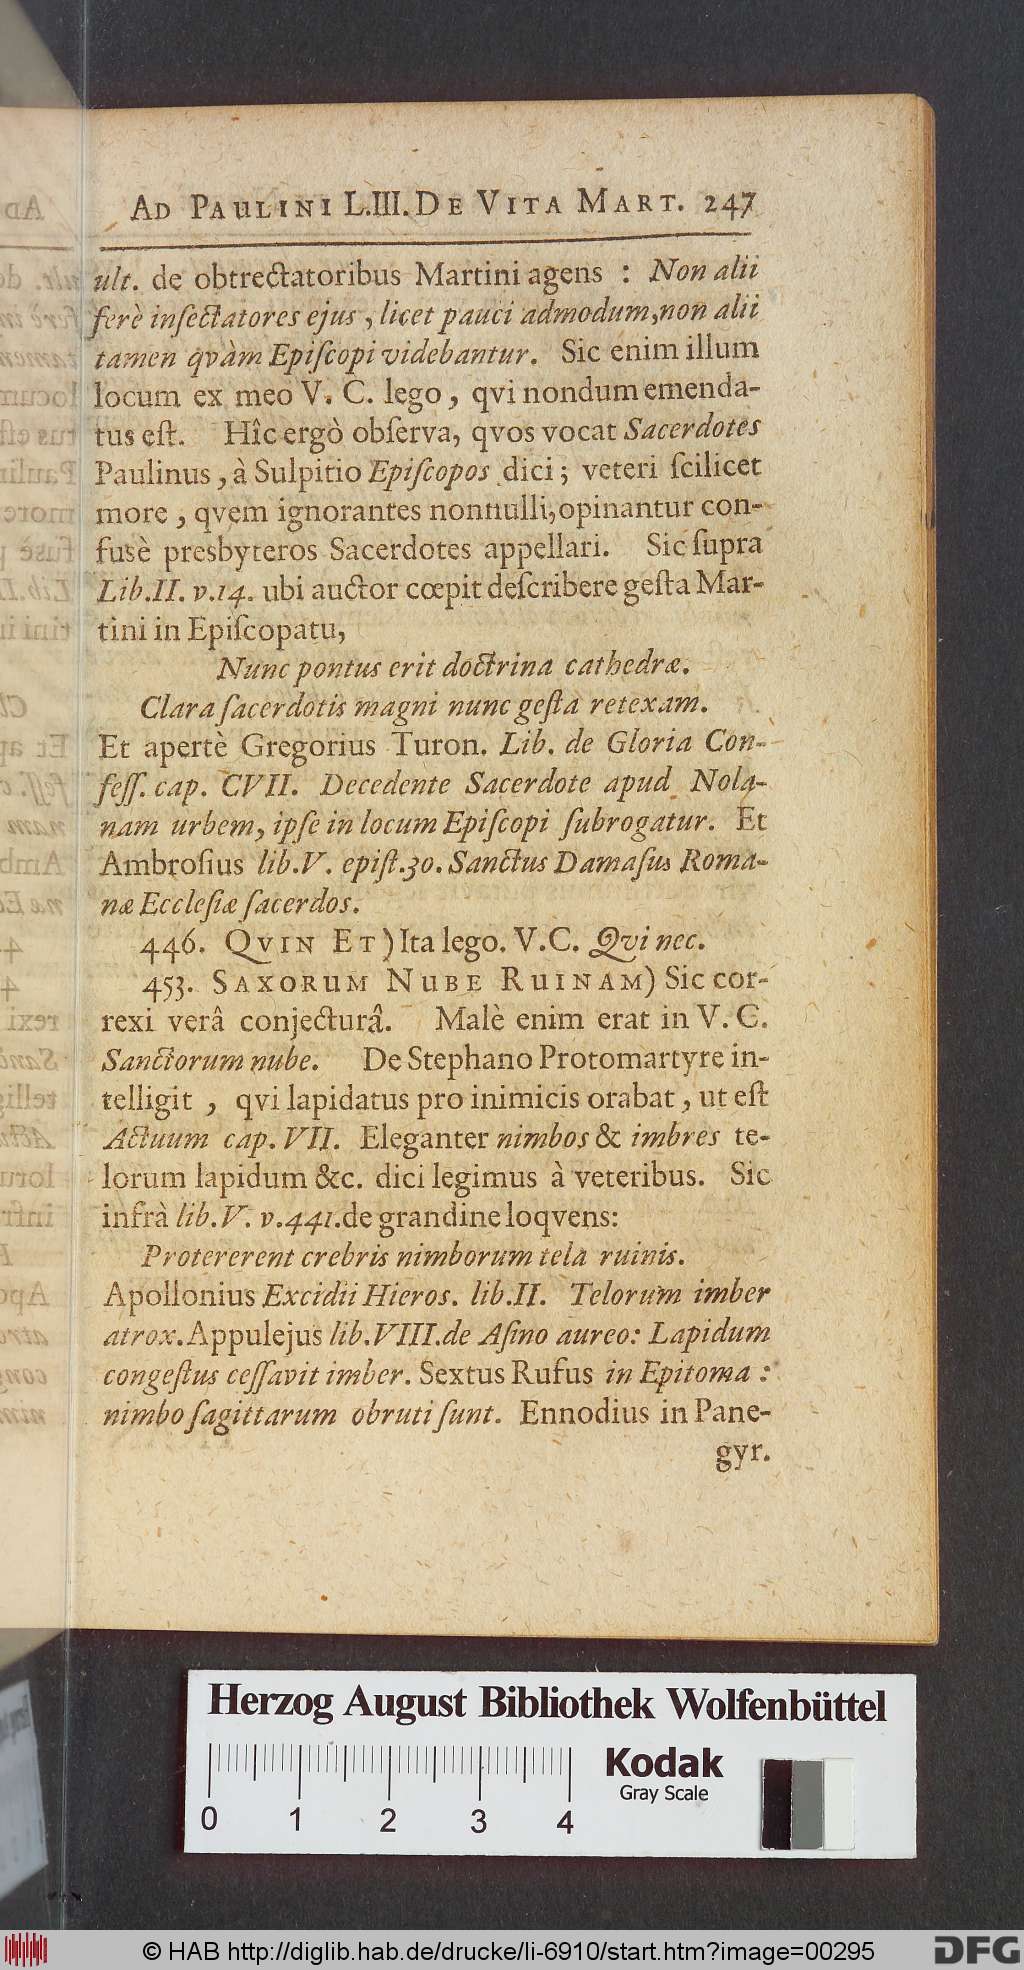 AD PAULINI L.III. DE VITA MART. 247
ult. de obtrectatoribus Martini agens : Non alii
ferè inſectatores ejus, licet pauci admodum, non alii
tamen qvàm Epiſcopi videbantur. Sic enim illum
locum ex meo V. C. lego, qvi nondum emenda-
tus eſt. Hîc ergò obſerva, qvos vocat Sacerdotes
Paulinus, à Sulpitio Epiſcopos dici; veteri ſcilicet
more, qvem ignorantes nonnulli, opinantur con-
fusè presbyteros Sacerdotes appellari. Sic ſupra
Lib. II. v. 14. ubi auctor cœpit deſcribere geſta Mar-
tini in Epiſcopatu,
Nunc pontus erit doctrina cathedræ.
Clara ſacerdotis magni nunc geſta retexam.
Et apertè Gregorius Turon. Lib. de Gloria Con-
feſſ. cap. CVII. Decedente Sacerdote apud Nola-
nam urbem, ipſe in locum Epiſcopi ſubrogatur. Et
Ambroſius lib. V. epiſt. 30. Sanctus Damaſus Roma-
næ Eccleſiæ ſacerdos.
446. QVIN ET) Ita lego. V. C. Qvi nec.
453. SAXORUM NUBE RUINAM) Sic cor-
rexi verâ conjecturâ. Malè enim erat in V. C.
Sanctorum nube. De Stephano Protomartyre in-
telligit, qvi lapidatus pro inimicis orabat, ut eſt
Actuum cap. VII. Eleganter nimbos & imbres te-
lorum lapidum &c. dici legimus à veteribus. Sic
infrà lib. V. v. 441. de grandine loqvens:
Protererent crebris nimborum tela ruinis.
Apollonius Excidii Hieros. lib. II. Telorum imber
atrox. Appulejus lib. VIII. de Aſino aureo: Lapidum
congeſtus ceſſavit imber. Sextus Rufus in Epitoma :
nimbo ſagittarum obruti ſunt. Ennodius in Pane-
gyr.
Herzog August Bibliothek Wolfenbüttel
Kodak
Gray Scale
0 1 2 3 4
© HAB http://diglib.hab.de/drucke/li-6910/start.htm?image=00295
DFG